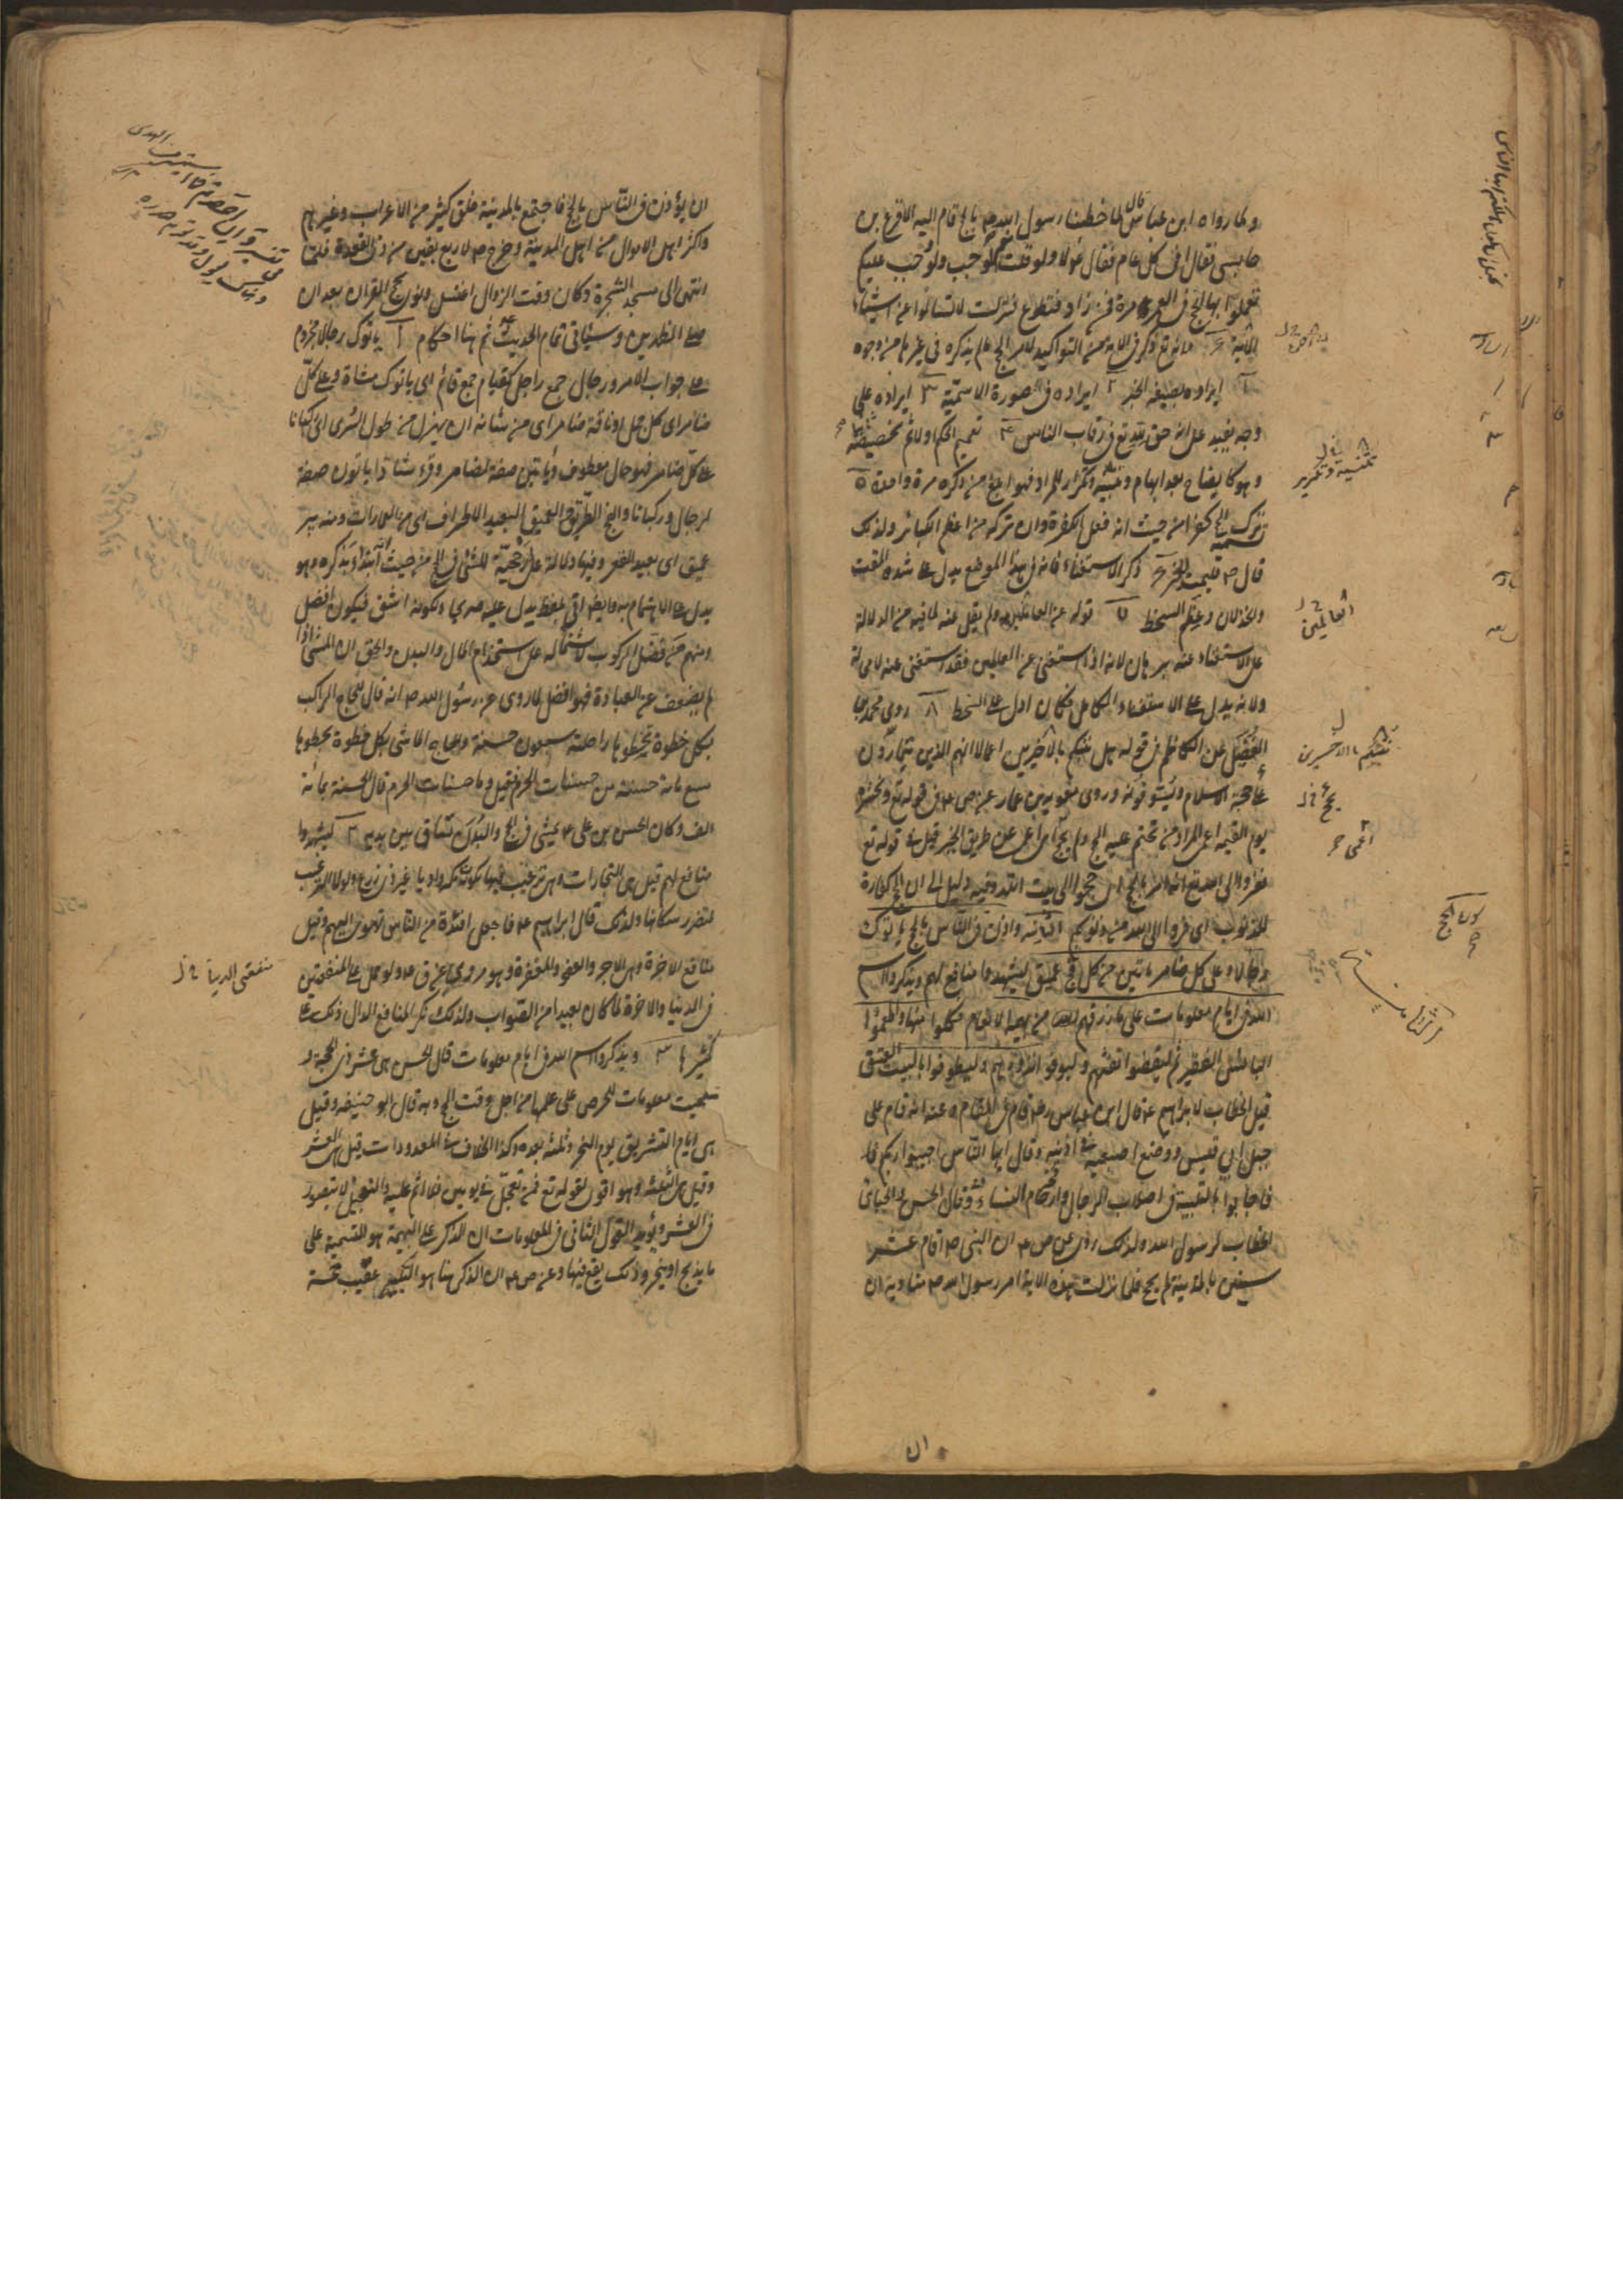 ولما رواه ابن عباس قال لما خطبنا رسول الله ص بالحج قام اليه الاقرع بن
حابس فقال افى كل عام فقال ص لا ولو قلت نعم لوجب ولو وجب عليكم
لم تعملوا بها الحج فى العمر مرة فمن زاد فتطوع فنزلت لا تسالوا عن اشياء
الآية ٦ انه تع ذكر فى الاية من التواكيد لامر الحج ما لم يذكره فى غيرها من وجوه
١ ايراده بصيغة الخبر ٢ ايراده فى صورة الاسمية ٣ ايراده على
وجه يفيد على انه حق لله تع فى رقاب الناس ٤ تعميم الحكم اولا ثم تخصيصه
وهو كايضاح بعد ابهام وتثنية وتكرار للمراد فهو ابلغ من ذكره مرة واحدة ٥
تسمية ترك الحج كفرا من حيث انه فعل الكفرة وان تركه من اعظم الكبائر ولذلك
قال ص فليمت الخبر ٦ ذكر الاستغناء فانه فى هذا الموضع يدل على شدة المقت
والخذلان وعظم السخط ٧ قوله عن العالمين ولم يقل عنه لما فيه من الدلالة
على الاستغناء عنه ببرهان لانه اذا استغنى عن العالمين فقد استغنى عنه لا محالة
ولانه يدل على الاستغناء الكامل فكان ادل على السخط ٨ روى محمد بن
الفضيل عن الكاظم فى قوله هل ننبئكم بالاخسرين اعمالا انهم الذين يتمادون
بحجة الاسلام ويسوفونه وروى معوية بن عمار عن ص ع فى قوله تع ونحشره
يوم القيمة اعمى المراد من تحتم عليه الحج ولم يحج اى اعمى عن طريق الخير قيل فى قوله تع
ففروا الى الله تع انه امر بالحج اى حجوا الى بيت الله وفيه دليل الى ان الحج كفارة
للذنوب اى فروا الى الله من ذنوبكم الثانية واذن فى الناس بالحج ياتوك
رجالا وعلى كل ضامر ياتين من كل فج عميق ليشهدوا منافع لهم ويذكروا اسم
الله فى ايام معلومات على ما رزقهم الله من بهيمة الانعام فكلوا منها واطعموا
البائس الفقير ثم ليقضوا تفثهم وليوفوا نذورهم وليطوفوا بالبيت العتيق
قيل الخطاب لابراهيم ع قال ابن عباس رض قام فى المقام وعنه انه قام على
جبل ابى قبيس ووضع اصبعيه فى اذنيه وقال ايها الناس اجيبوا ربكم
فاجابوا بالتلبية فى اصلاب الرجال وارحام النساء وقال الحسن والجبائى
الخطاب لرسول الله ولذلك روى عن ص ع ان النبى ص اقام عشر
سنين بالمدينة لم يحج فلما نزلت هذه الاية امر رسول الله ص مناديه ان
ان
ان يؤذن فى الناس بالحج فاجتمع بالمدينة خلق كثير من الاعراب وغيرهم
واكثر اهل الاموال من اهل المدينة وخرج ص لاربع بقين من ذى القعدة فلما
انتهى الى مسجد الشجرة وكان وقت الزوال اغتسل ونوى حج القران بعد ان
صلى الظهرين وسياتى تمام الحديث ثم هنا احكام ١ ياتوك رجالا مجزوم
على جواب الامر ورجال جمع راجل كقيام جمع قائم اى ياتوك مشاة وعلى كل
ضامر اى كل جمل او ناقة ضامر اى من شانه ان يهزل من طول السرى اى ركبانا
على كل ضامر فهو حال معطوف وياتين صفة لضامر وقرء شاذا ياتون صفة
لرجال وركبانا والفج الطريق والعميق البعيد الاطراف اى من العمارات ومنه بير
عميق اى بعيد القعر وفيها دلالة على ارجحية المشى فى الحج من حيث ابتدا بذكره وهو
يدل على الاهتمام به وايضا اتى بلفظ يدل عليه صريحا ولكونه اشق فيكون افضل
ومنهم من فضل الركوب لاشتماله على استخدام المال والبدن والحق ان المشى اذا
لم يضعف عن العبادة فهو افضل لما روى عن رسول الله ص انه قال للحاج الراكب
بكل خطوة تخطوها راحلته سبعون حسنة وللحاج الماشى بكل خطوة يخطوها
سبع مائة حسنة من حسنات الحرم قيل وما حسنات الحرم قال الحسنة بمائة
الف وكان الحسن بن على ع يمشى فى الحج والبدن تساق بين يديه ٢ ليشهدوا
منافع لهم قيل هى التجارات وهى ترغيب فيها لكون مكة واديا غير ذى زرع ولولا الترغيب
لتضرر سكانها ولذلك قال ابراهيم ع فاجعل افئدة من الناس تهوى اليهم وقيل
منافع الاخرة وهى الاجر والعفو والمغفرة وهو مروى عن ق ع ولو حمل على المنفعتين
فى الدنيا والاخرة لما كان بعيدا من الصواب ولذلك نكر المنافع الدال ذلك على
تكثيرها ٣ ويذكروا اسم الله فى ايام معلومات قال الحسن هى عشر ذى الحجة و
سميت معلومات للحرص على علمها من اجل وقت الحج وبه قال ابو حنيفه وقيل
هى ايام التشريق يوم النحر وثلثة بعده وكذا الخلاف فى المعدودات قيل هى العشر
وقيل هى الثلثة وهو اقوى لقوله تع فمن تعجل فى يومين فلا اثم عليه والتعجيل لا يتصور
فى العشر ويؤيد القول الثانى فى المعلومات ان الذكر على البهيمة هو التسمية على
ما يذبح او ينحر وذلك يقع فيها وعن ص ع ان الذكر هنا هو التكبير عقيب خمسة